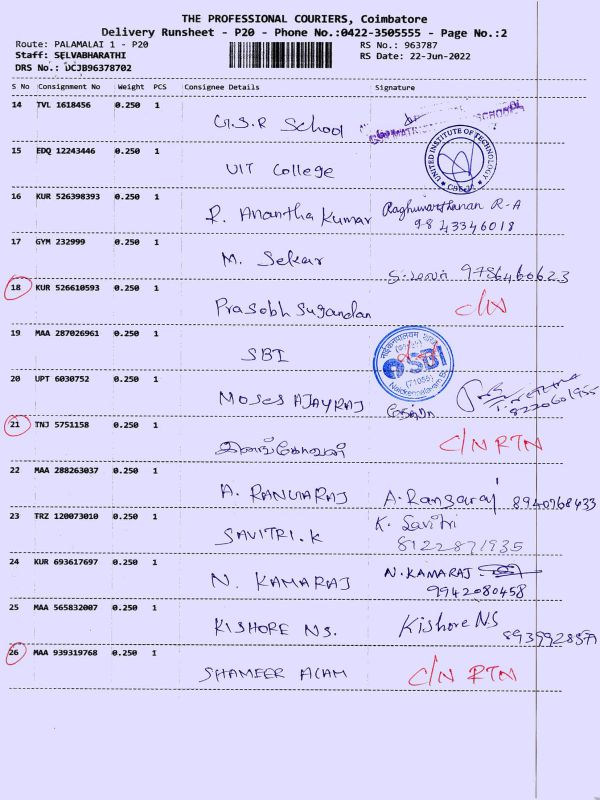 THE PROFESSIONAL COURIERS, Coimbatore
Delivery Runsheet - P20 - Phone No.:0422-3505555 - Page No.:2
Route: PALAMALAI 1 - P20 RS No.: 963787
Staff: SELVABHARATHI RS Date: 22-Jun-2022
DRS No.: DCJB96378702
S No Consignment No Weight PCS Consignee Details Signature
14 TVL 1618456 0.250 1
G.S.R School SCHOOL
15 EDQ 12243446 0.250 1
UIT College UNITED INSTITUTE OF TECHNOLOGY
16 KUR 526398393 0.250 1
R. Anantha Kumar Raghuvarthanan R-A
9843346018
17 GYM 232999 0.250 1
M. Sekar 9786460623
18 KUR 526610593 0.250 1
Prasobh Sugandan C/N
19 MAA 287026961 0.250 1
SBI SBI
(71055)
20 UPT 6030752 0.250 1
MOSES AJAYRAJ 8220601955
21 TNJ 5751158 0.250 1
இளங்கோவன் C/N RTN
22 MAA 288263037 0.250 1
A. RANGARAJ A. Rangaraj 8940968433
23 TRZ 120073010 0.250 1
SAVITRI.K K. Savitri
8122871935
24 KUR 693617697 0.250 1
N. KAMARAJ N. KAMARAJ
9942080458
25 MAA 565832007 0.250 1
KISHORE NS. Kishore NS
26 MAA 939319768 0.250 1
SHAMEER ALAM C/N RTN